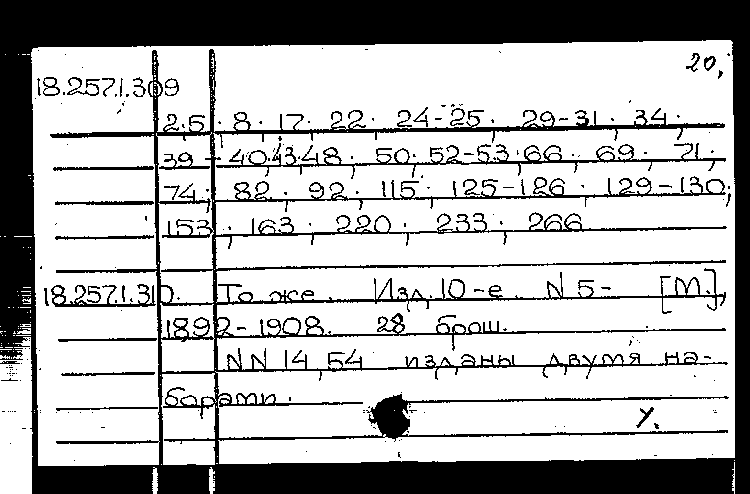 20,
18.257.1.309
2;5; 8; 17; 22; 24-25; 29-31; 34;
39-40;43;48; 50; 52-53;66; 69; 71;
74; 82; 92; 115; 125-126; 129-130;
153; 163; 220; 233; 266
18.257.1.310. То же. Изд. 10-е. N 5- [М.],
1892-1908. 28 брош.
NN 14,54 изданы двумя на-
борами.
У.